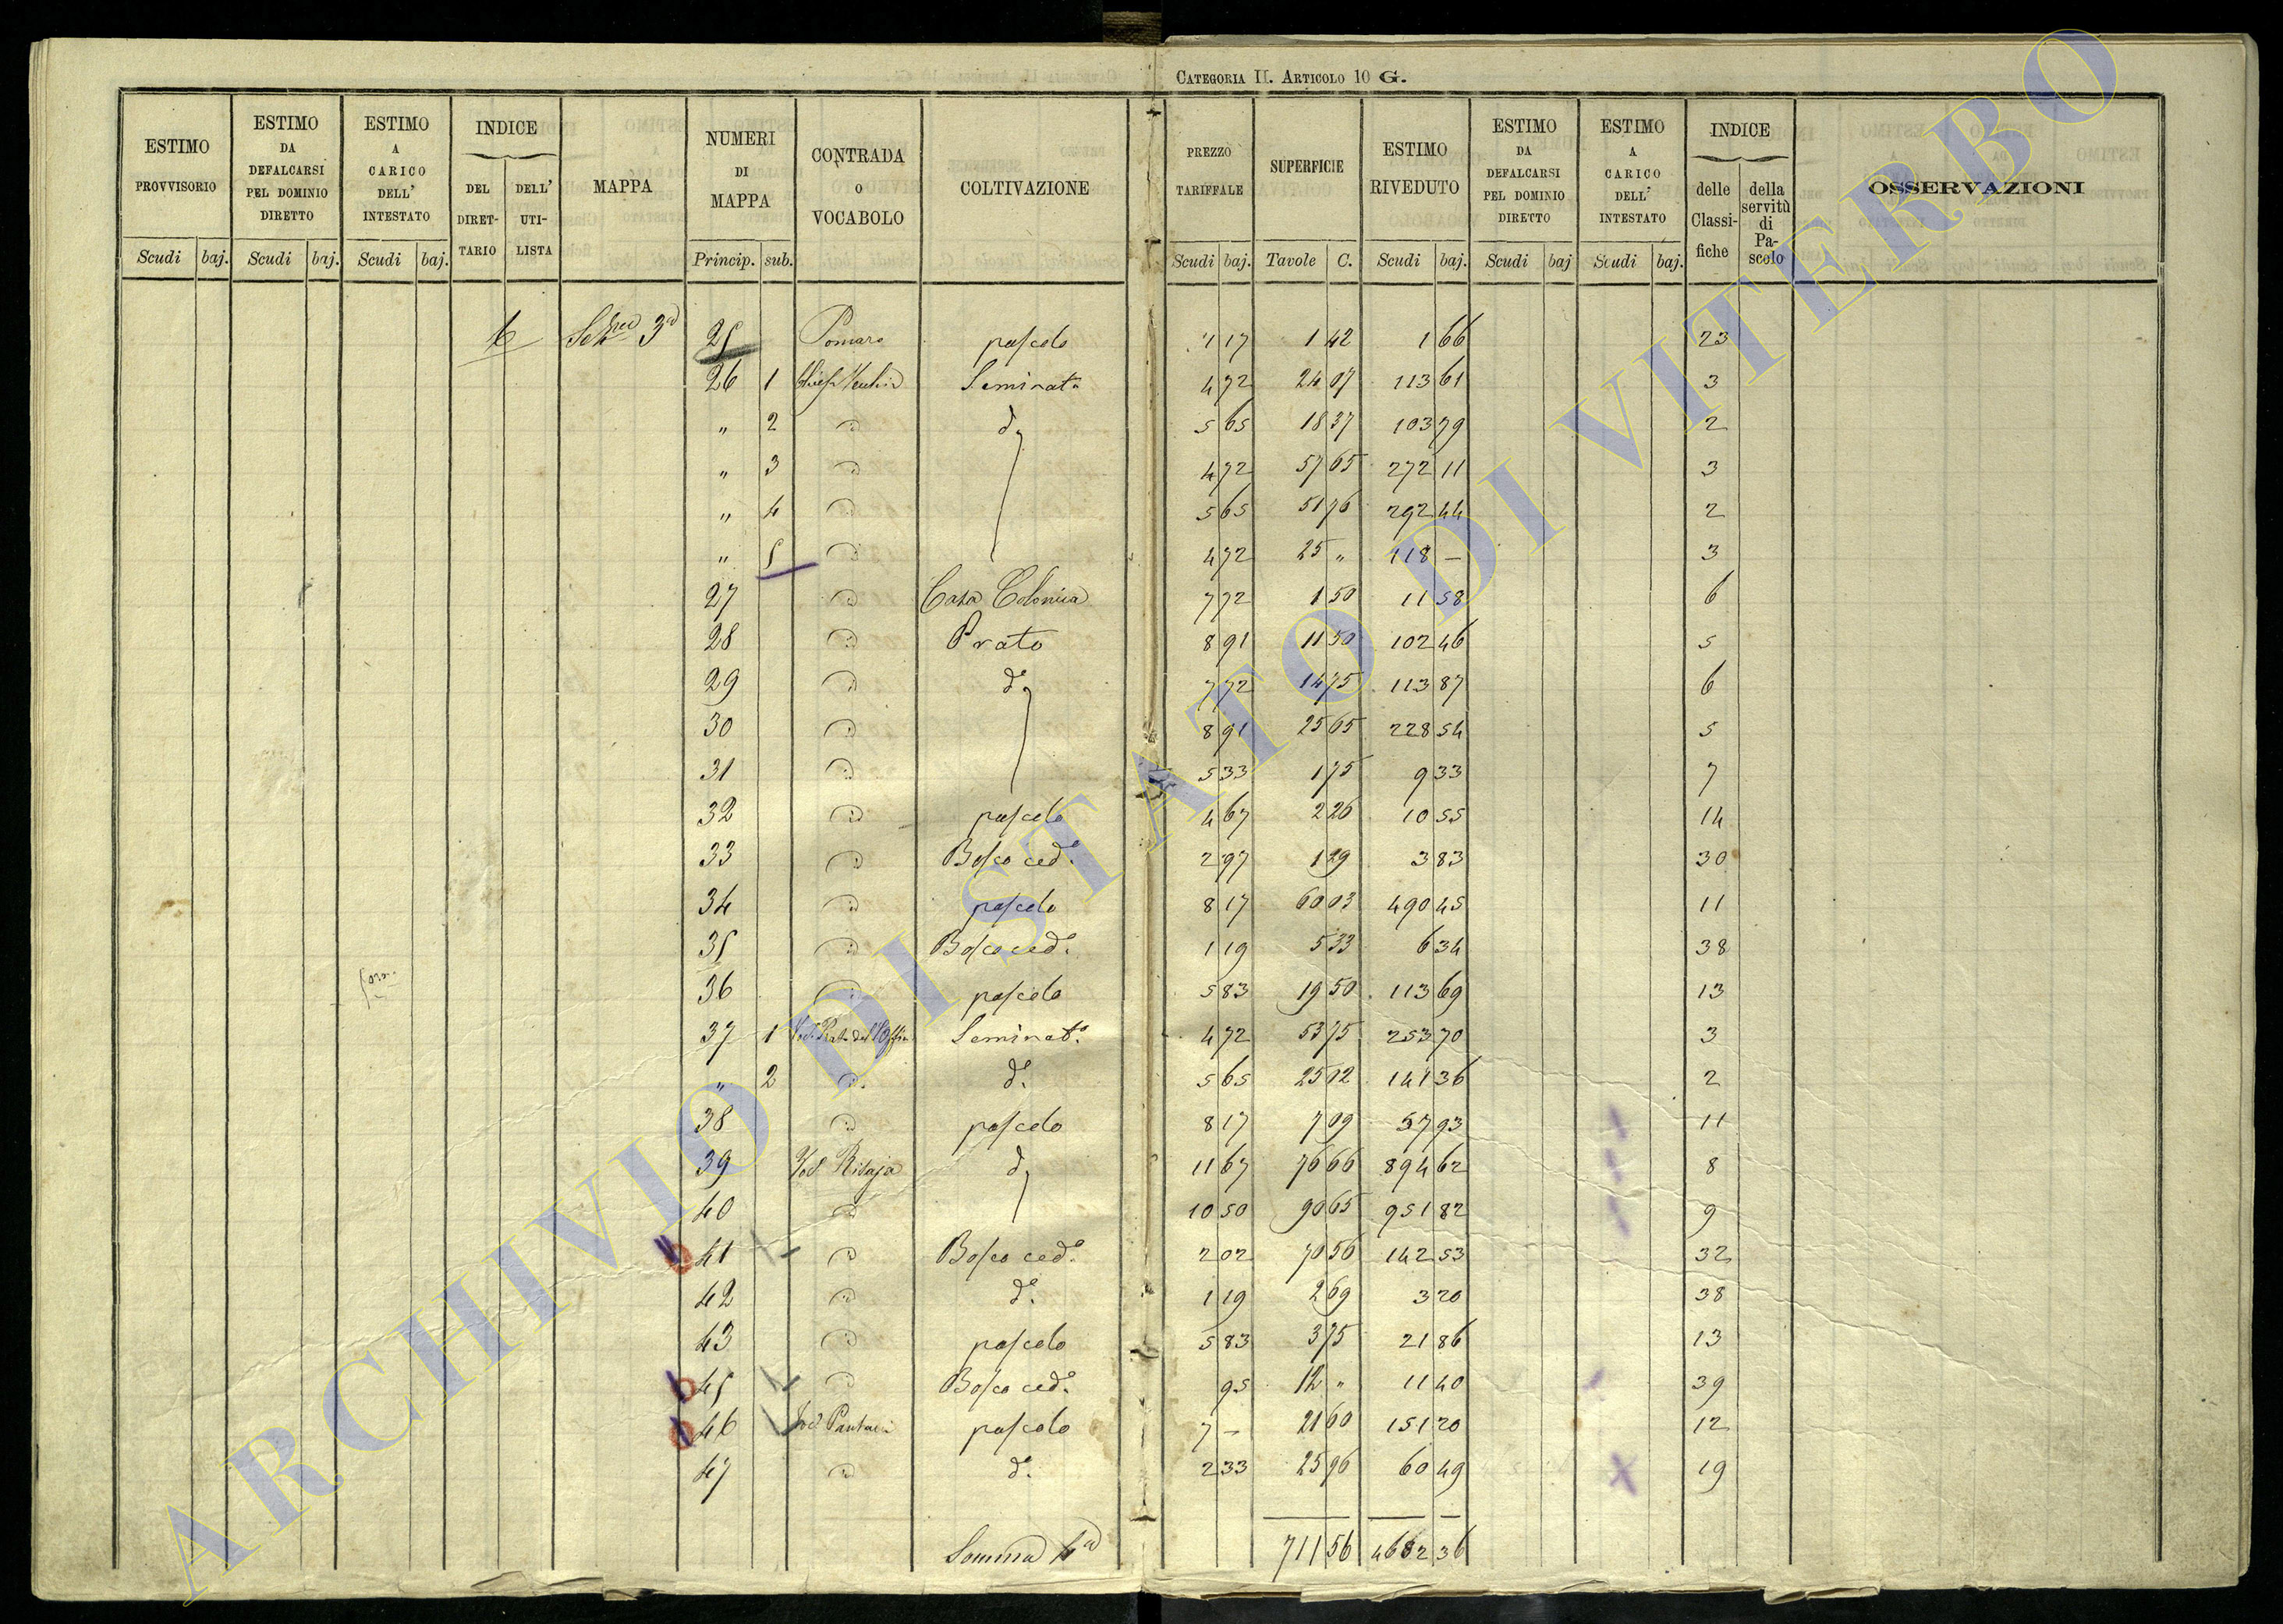 CATEGORIA II. ARTICOLO 10 G.
ESTIMO PROVVISORIO
ESTIMO DA DEFALCARSI PEL DOMINIO DIRETTO
ESTIMO A CARICO DELL' INTESTATO
INDICE
DEL DIRETTARIO
DELL' UTILISTA
MAPPA
NUMERI DI MAPPA
CONTRADA O VOCABOLO
COLTIVAZIONE
PREZZO TARIFFALE
SUPERFICIE
ESTIMO RIVEDUTO
ESTIMO DA DEFALCARSI PEL DOMINIO DIRETTO
ESTIMO A CARICO DELL' INTESTATO
INDICE
delle Classifiche
della servitù di Pascolo
OSSERVAZIONI
Scudi baj. Scudi baj. Scudi baj. Princip. sub. Scudi baj. Tavole C. Scudi baj. Scudi baj Scudi baj.
3a 25 Pomaro pascolo 1 17 1 42 1 66 23
26 1 Seminato 4 72 24 07 113 61 3
" 2 do 5 65 18 37 103 79 2
" 3 4 72 57 65 272 11 3
" 4 5 65 51 76 292 44 2
" 5 4 72 25 " 118 — 3
27 Casa Colonica 7 72 1 50 11 58 6
28 Prato 8 91 11 50 102 46 5
29 do 7 72 14 75 113 87 6
30 8 91 25 65 228 54 5
31 5 33 1 75 9 33 7
32 pascolo 4 67 2 26 10 55 14
33 Bosco cedo. 2 97 1 29 3 83 30
34 pascolo 8 17 60 03 490 45 11
35 Bosco cedo. 1 19 5 33 6 34 38
36 pascolo 5 83 19 50 113 69 13
37 1 Seminato. 4 72 53 75 253 70 3
" 2 do. 5 65 25 02 141 36 2
38 pascolo 8 17 7 09 57 93 11
39 do 11 67 76 66 894 62 8
40 10 50 90 65 951 82 9
41 Bosco cedo. 2 02 70 56 142 53 32
42 do. 1 19 2 69 3 20 38
43 pascolo 5 83 3 75 21 86 13
45 Bosco cedo. 95 12 " 11 40 39
46 pascolo 7 — 21 60 151 20 12
47 do. 2 33 25 96 60 49 19
Somma 711 56 4682 36
ARCHIVIO DI STATO DI VITERBO